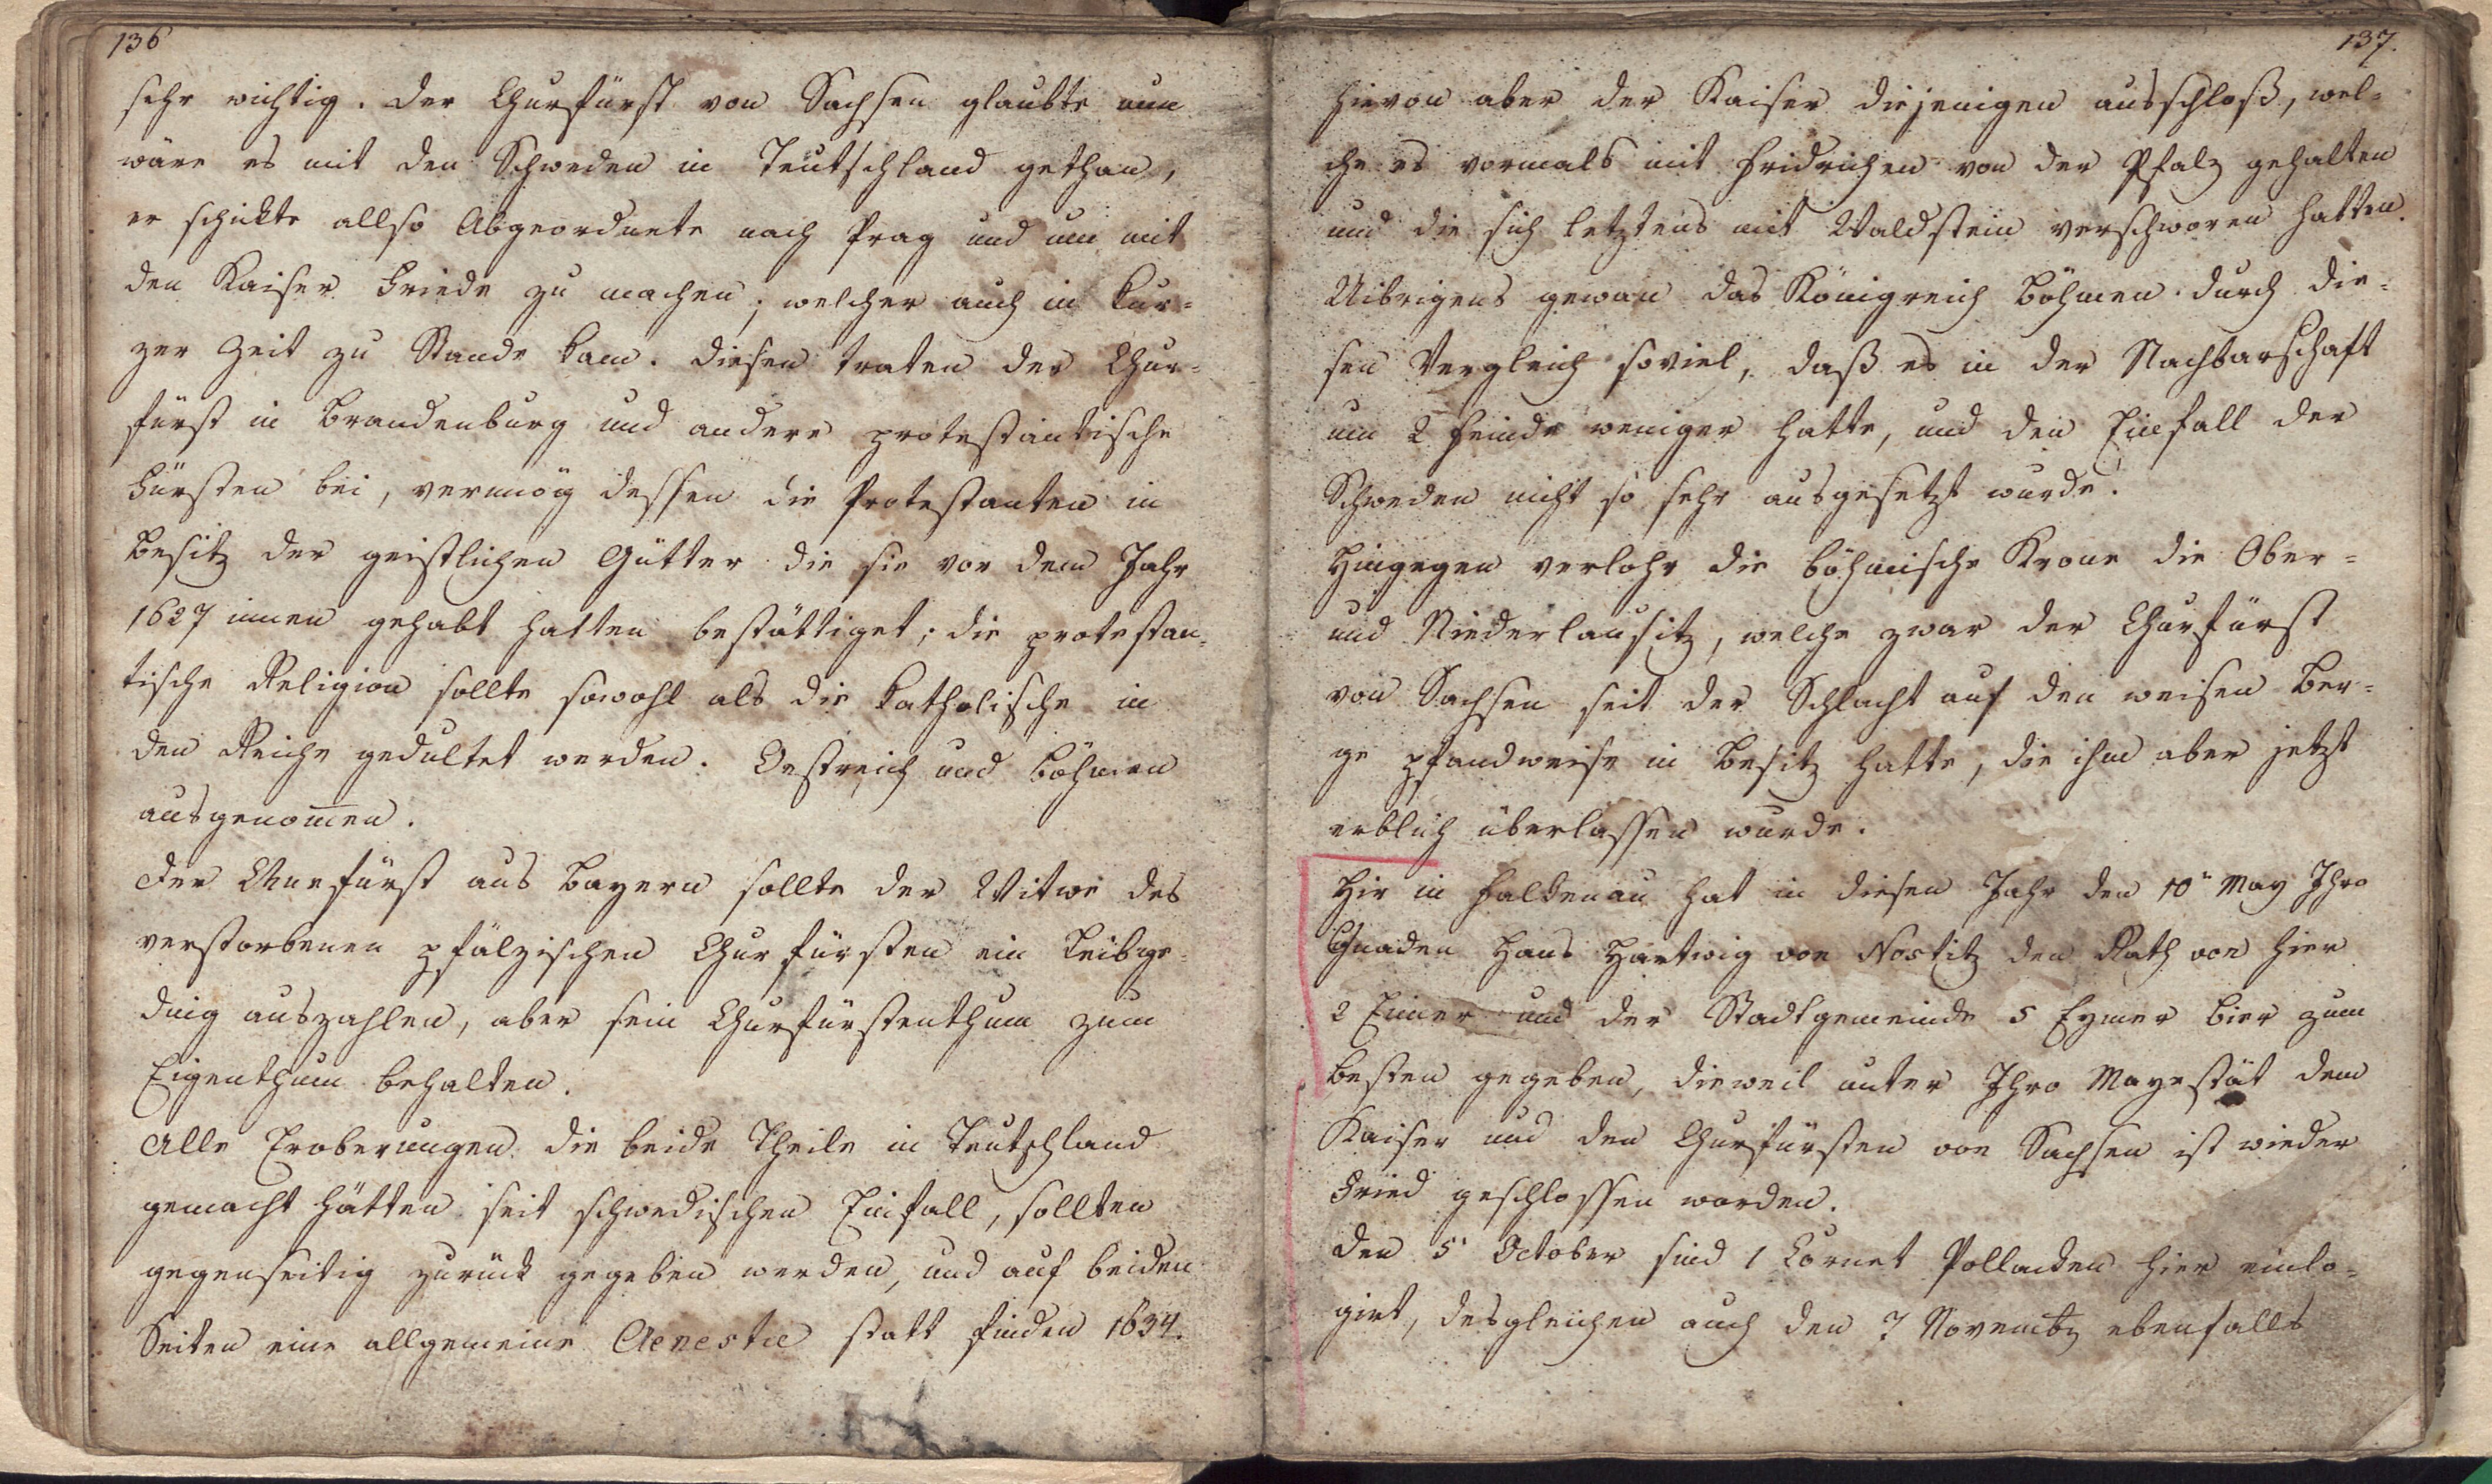 136
sehr wichtig. Der Churfürst von Sachsen glaubte nun
wäre es mit den Schweden in Teutschland gethan,
er schickte allso Abgeordnete nach Prag und um mit
den Kaiser Friede zu machen; welcher auch in kur-
zer Zeit zu Stande kam. Diesen traten der Chur-
fürst in Brandenburg und andere protestantische
Fürsten bei, vermög dessen die Protestanten in
Besitz der geistlichen Gütter die sie vor dem Jahr
1627 innen gehabt hatten bestättiget; die protestan-
tische Religion sollte sowohl als die katholische in
den Reiche gedultet werden. Oestreich und Böhmen
ausgenom̅en.
Der Churfürst aus Bayern sollte der Witwe des
verstorbenen pfälzischen Churfürsten ein Leibge-
ding auszahlen, aber sein Churfürstenthum zum
Eigenthum behalten.
Alle Eroberungen die beide Theile in Teutschland
gemacht hätten seit schwedischen Einfall, sollten
gegenseitig zurück gegeben werden, und auf beiden
Seiten eine allgemeine Aenestie statt finden 1634.
137.
Hievon aber der Kaiser diejenigen ausschloß, wel-
che es vormals mit Fridrichen von der Pfalz gehalten
und die sich letztens mit Waldstein verschworen hatten.
Uibrigens gewan das Königreich Böhmen durch die-
sen Vergleich soviel, daß es in der Nachbarschaft
um 2 Feinde weniger hatte, und den Einfall der
Schweden nicht so sehr ausgesetzt wurde.
Hingegen verlohr die böhmische Krone die Ober-
und Niederlausitz, welche zwar der Churfürst
von Sachsen seit der Schlacht auf den weisen Ber-
ge pfandweise in Besitz hatte, die ihm aber jetzt
erblich überlassen wurde.
Hir in Falkenau hat in diesen Jahr den 10" May Ihro
Gnaden Hans Hartwig von Nostitz den Rath von hier
2 Eimer und der Stadtgemeinde 5 Eymer Bier zum
besten gegeben, dieweil unter Ihro Mayestät dem
Kaiser und den Churfürsten von Sachsen ist wieder
Fried geschlossen worden.
Den 5' October sind 1 Cornet Pollacken hier einlo-
girt, desgleichen auch den 7 Novemb ebenfalls